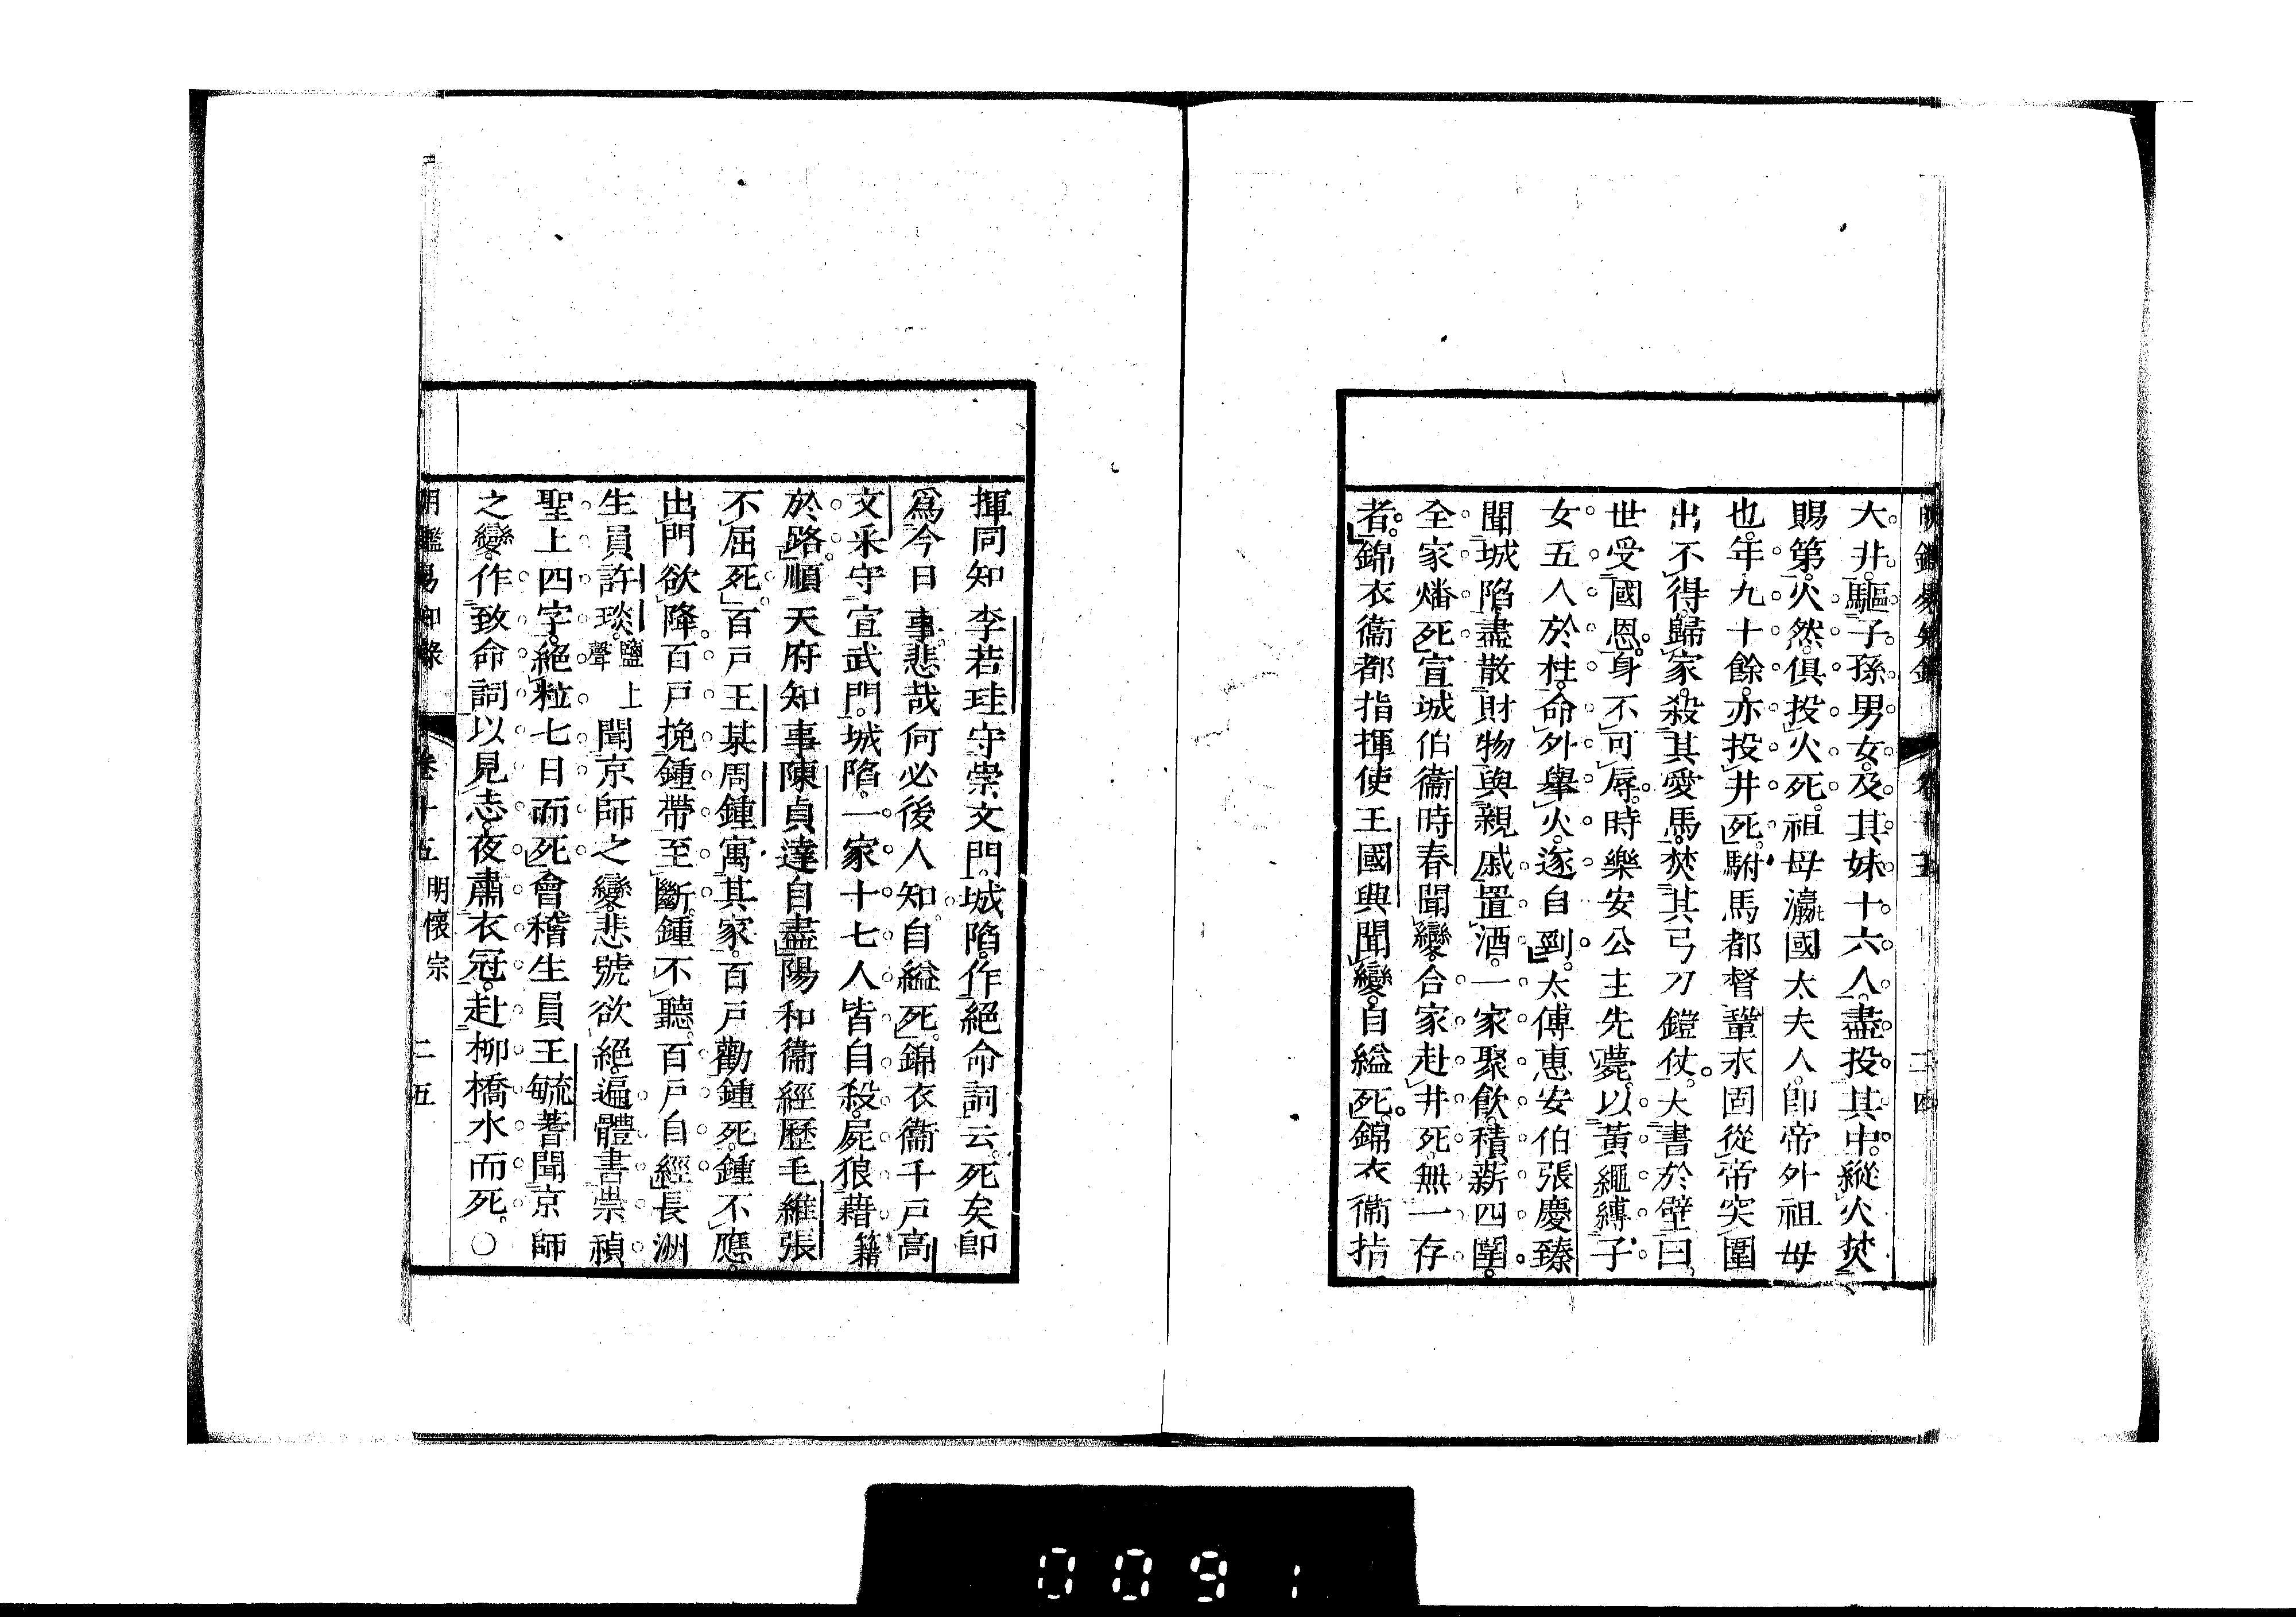 大井。驅子孫男女。及其妹十六人。盡投其中。縱火焚
賜第。火然。俱投火死。祖母瀛國太夫人。卽帝外祖母
也。年九十餘。亦投井死。駙馬都督鞏永固從帝突圍
出不得。歸家。殺其愛馬。焚其弓刀鎧仗。大書於壁曰。
世受國恩。身不可辱。時樂安公主先薨。以黃繩縛子
女五人於柱。命外舉火。遂自剄。太傅惠安伯張慶臻
聞城陷。盡散財物與親戚。置酒。一家聚飲。積薪四圍。
全家燔死。宣城伯衞時春聞變。合家赴井死。無一存
者。錦衣衞都指揮使王國興聞變。自縊死。錦衣衞指
揮同知李若珪守崇文門。城陷。作絕命詞云。死矣卽
爲今日事。悲哉何必後人知。自縊死。錦衣衞千戸高
文采守宣武門。城陷。一家十七人皆自殺。屍狼藉籍
於路。順天府知事陳貞達自盡。陽和衞經歷毛維張
不屈死。百戸王某周鍾寓其家。百戸勸鍾死。鍾不應。
出門欲降。百戸挽鍾帶至斷。鍾不聽。百戸自經。長洲
生員許琰。鹽上聲聞京師之變。悲號欲絕。遍體書崇禎
聖上四字。絕粒七日而死。會稽生員王毓蓍聞京師
之變。作致命詞以見志。夜肅衣冠。赴柳橋水而死。〇
明鑑易知錄 卷十五 明懷宗 二五